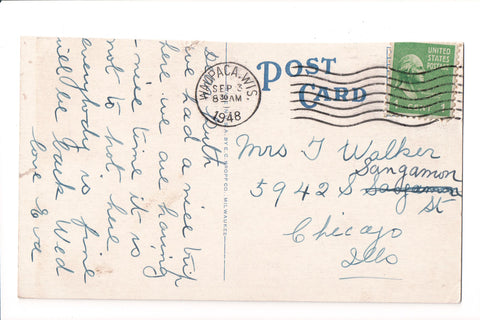 Dear Ruth
we had a nice trip
here we are having
a nice time it is
not to hot here
everybody is fine
will be back Wed
love Eva
POST
CARD
WAUPACA, WIS.
SEP 3
8 30 AM
1948
UNITED
STATES
POSTAGE
E.C. KROPP CO. MILWAUKEE
Mrs J Walker
Sangamon
5942 S Sangamon
St
Chicago
Ills